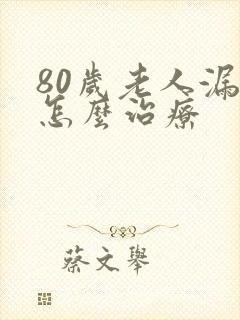 80歲老人漏
怎麼治療
蔡文舉